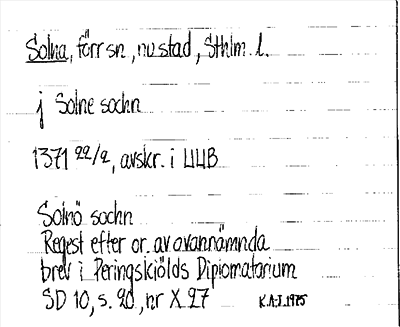 Solna, förr sn, nu stad, Sthlm l.
j Solne sochn
1371 22/2, avskr. i UUB
Solnö sochn
Regest efter or. av ovannämnda
brev i Peringskiölds Diplomatarium
SD 10, s. 20, nr X 27
K.A.J. 1975